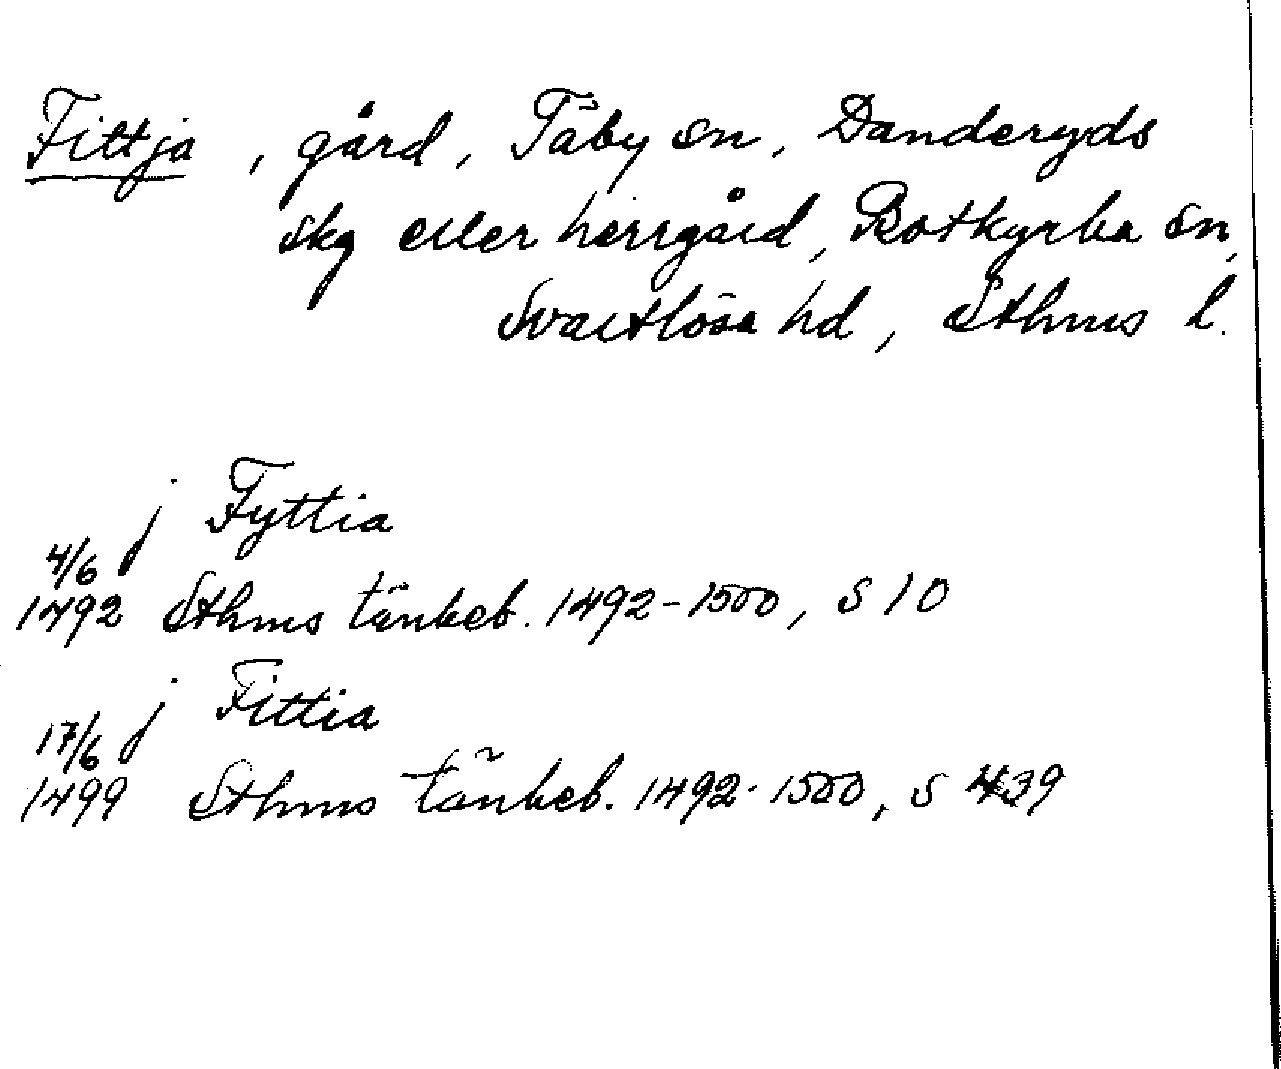 Fittja, gård, Täby sn, Danderyds
skg eller herrgård, Botkyrka sn,
Svartlösa hd, Sthms l.
j Fyttia
4/6
1492 Sthms tänkeb. 1492-1500, s 10
j Fittia
17/6
1499 Sthms tänkeb. 1492-1500, s 439